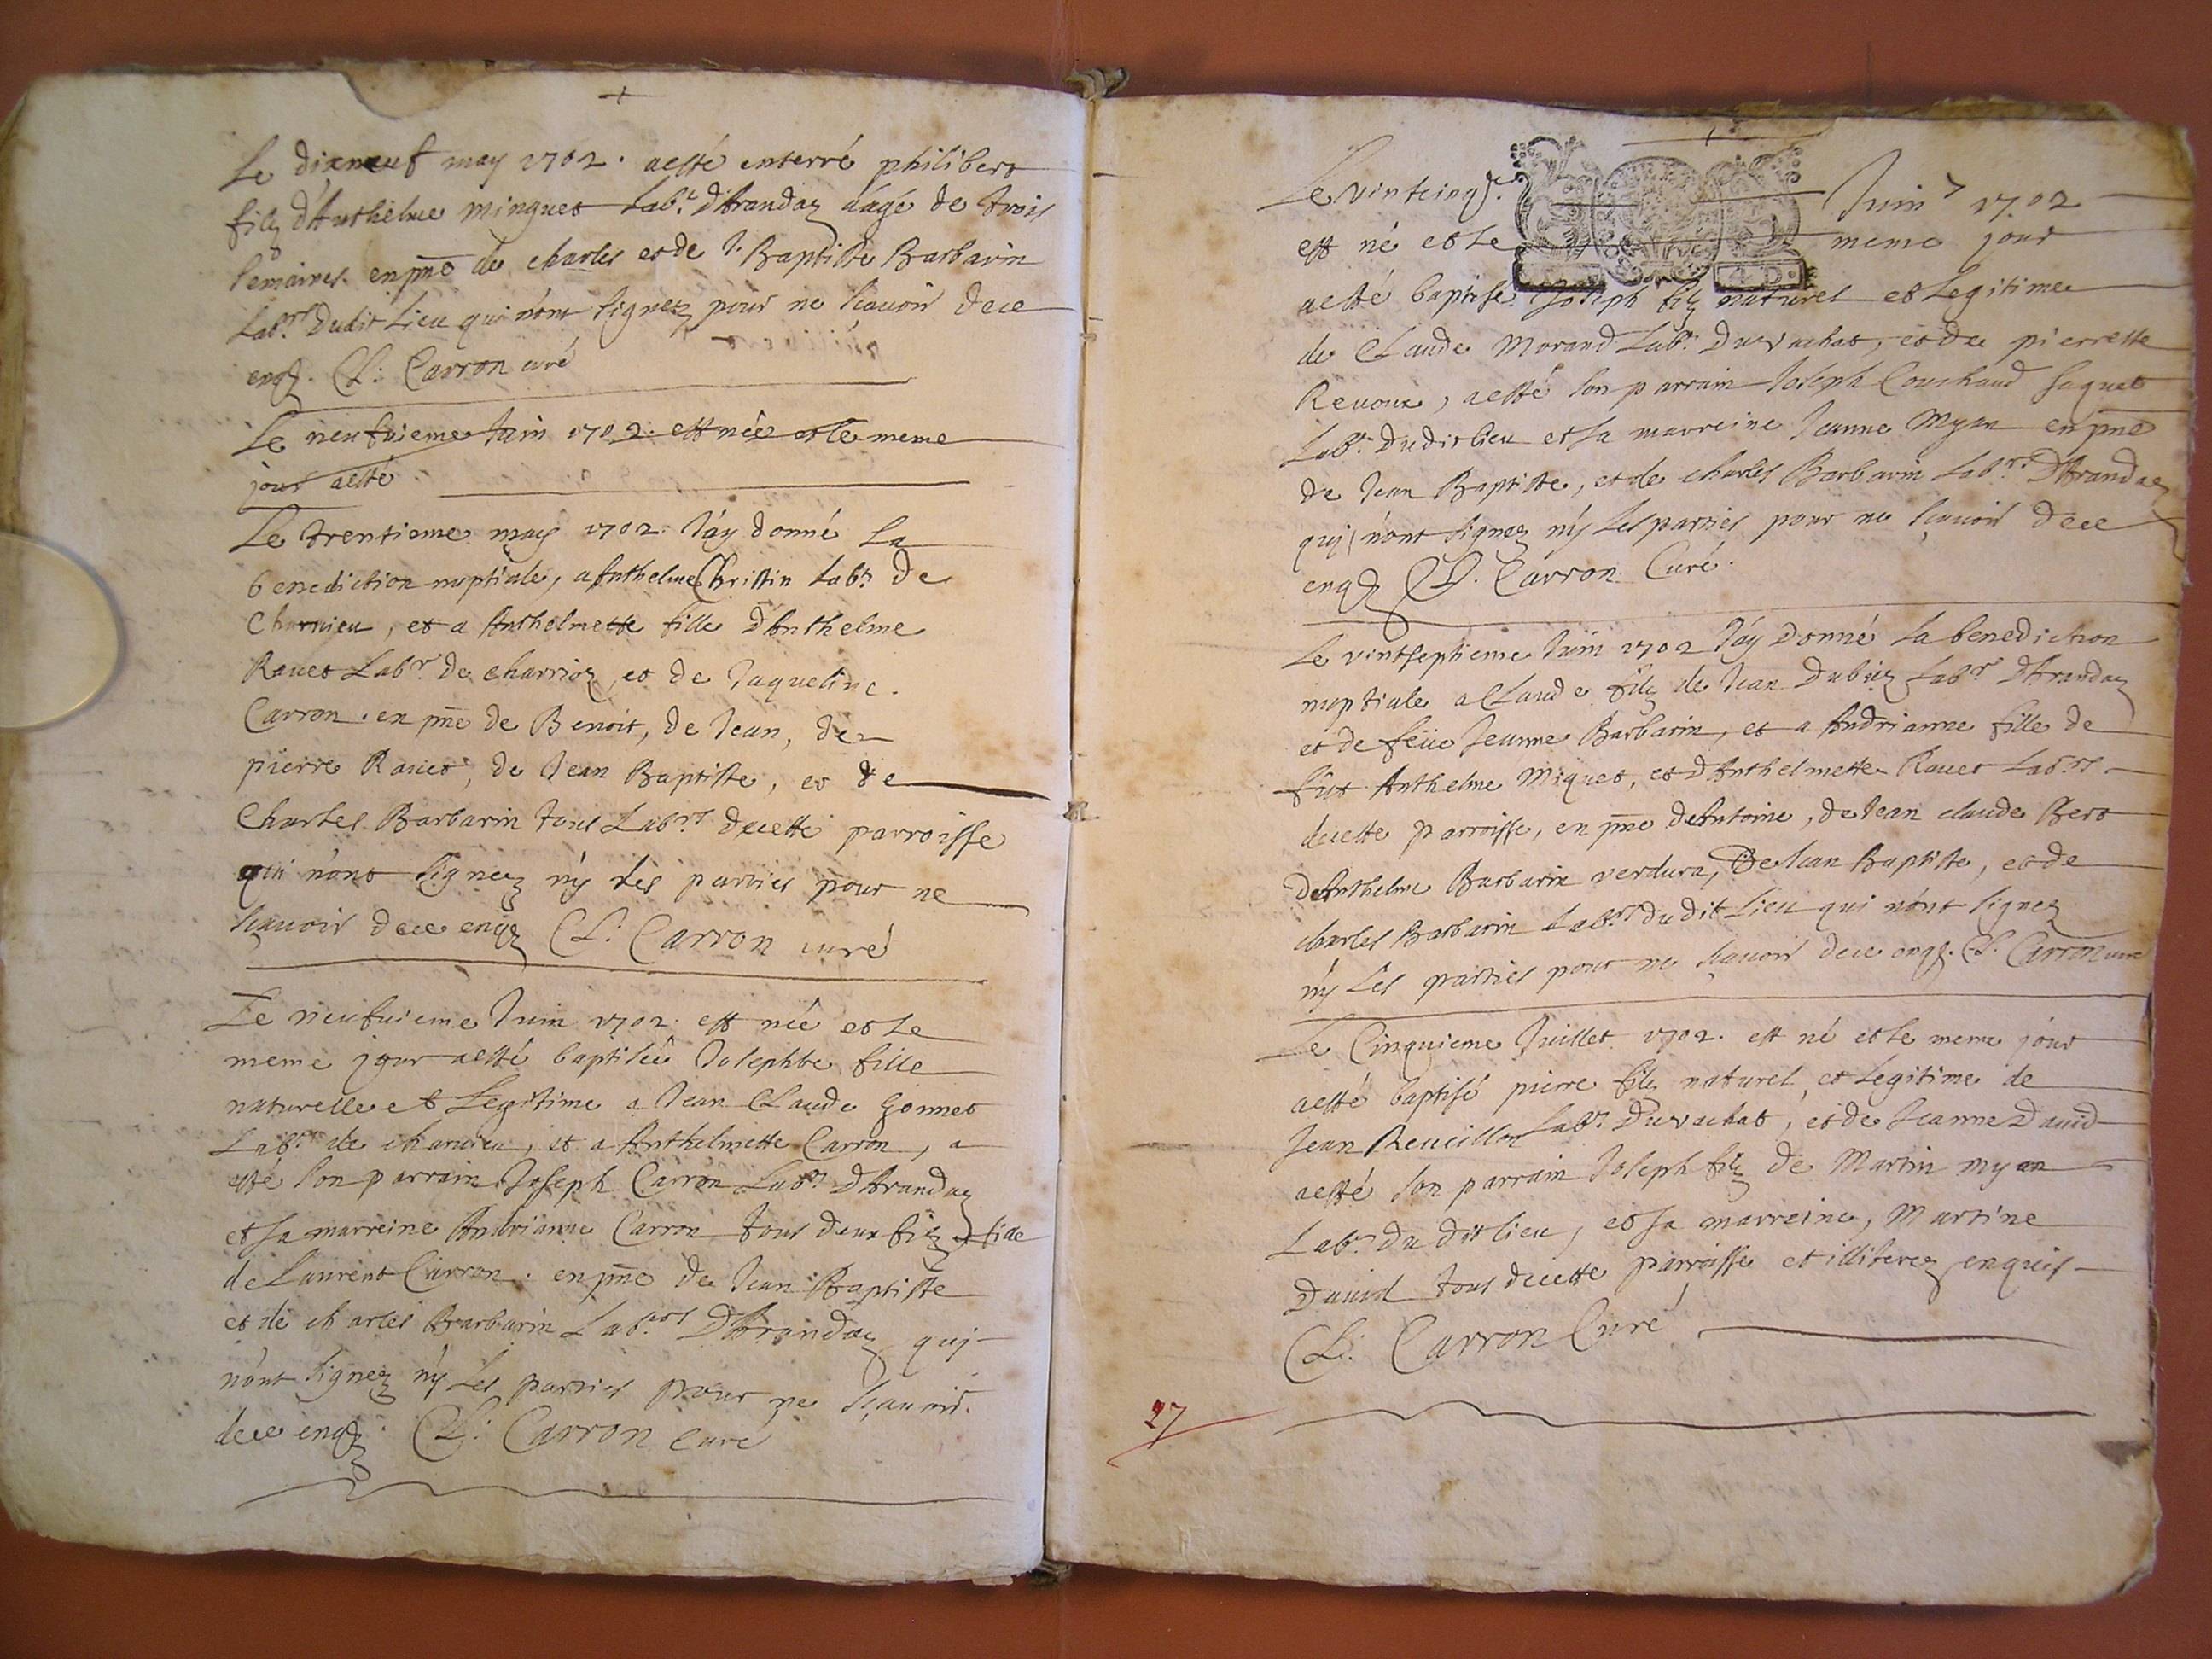 Le dixneuf may 1702. aesté enterré philibert
filz d'Anthelme minguet Labr. d'Arandaz ââgé de trois
semaines. en pñce de charles et de J. Baptiste Barbarin
Labrs. Dudit Lieu qui n'ont signez pour ne scavoir dece
enqz. Cl: Carron curé
Le neufvieme Juin 1702. est née et le meme
jour aesté
Le trentieme may 1702. J'ay donné La
benediction nuptiale, a Anthelme Christin Labr. de
Charvieu, et a Anthelmette fille d'Anthelme
Ravet Labr. de charrioz, et de Jaqueline.
Carron. en pñce de Benoit, de Jean, de
pierre Ravet, de Jean Baptiste, et de
Charles Barbarin tous Labrs. decette parroisse
qui n'ont signez n'y les parties pour ne
scavoir dece enqz Cl: Carron curé
Le neufvieme Juin 1702. est née et le
meme jour aesté baptisée Josephte fille
naturelle et Legitime a Jean Claude Gonnet
Labr. de charvieu, et a Anthelmette Carron, a
esté son parrain Joseph Carron Labr. d'Arandaz
et sa marreine Andrianne Carron tous deux filz et fille
de Laurent Carron. en pñce de Jean Baptiste
et de charles Barbarin Labrs. d'Arandaz quj
n'ont signez n'y Les parties pour ne scavoir.
dece enqz. Cl: Carron Curé
Le vintcinqe. Juin 1702
est né et le meme jour
aesté baptisé Joseph filz naturel et Legitime
de Claude Morand Labr. Du vachat, et de pierrette
Revoux, aesté son parrain Joseph Couchaud
Labr. Dudit lieu et sa marreine Jeanne Myan en pñce
de Jean Baptiste, et de charles Barbarin Labrs. d'Arandaz
quj n'ont signez n'y Les parties pour ne scavoir dece
enqz Cl. Carron Curé.
Le vintseptieme Juin 1702 J'ay Donné la benediction
nuptiale a Claude filz de Jean Dubiez Labr. d'Arandaz
et de feüe Jeanne Barbarin, et a Andrianne fille de
füt Anthelme Miguet, et d'Anthelmette Ravet Labrs.
decette parroisse, en pñce d'Antoine, de Jean claude Bert
d'Anthelme Barbarin verdura, De Jean Baptiste, et de
charles Barbarin Labrs. du dit Lieu qui n'ont signez
n'y Les parties pour ne scavoir dece enqz. Cl. Carron curé
Le Cinquieme Juillet 1702. est né et le meme jour
aesté baptisé pierre filz naturel et Legitime de
Jean Reveillon Labr. Du vachat, et de Jeanne David
aesté son parrain Joseph filz de Martin myan
Labr. du dit lieu, et sa marreine, Martine
David tous decette parroisse et illiterez enquis
Cl: Carron Curé
27